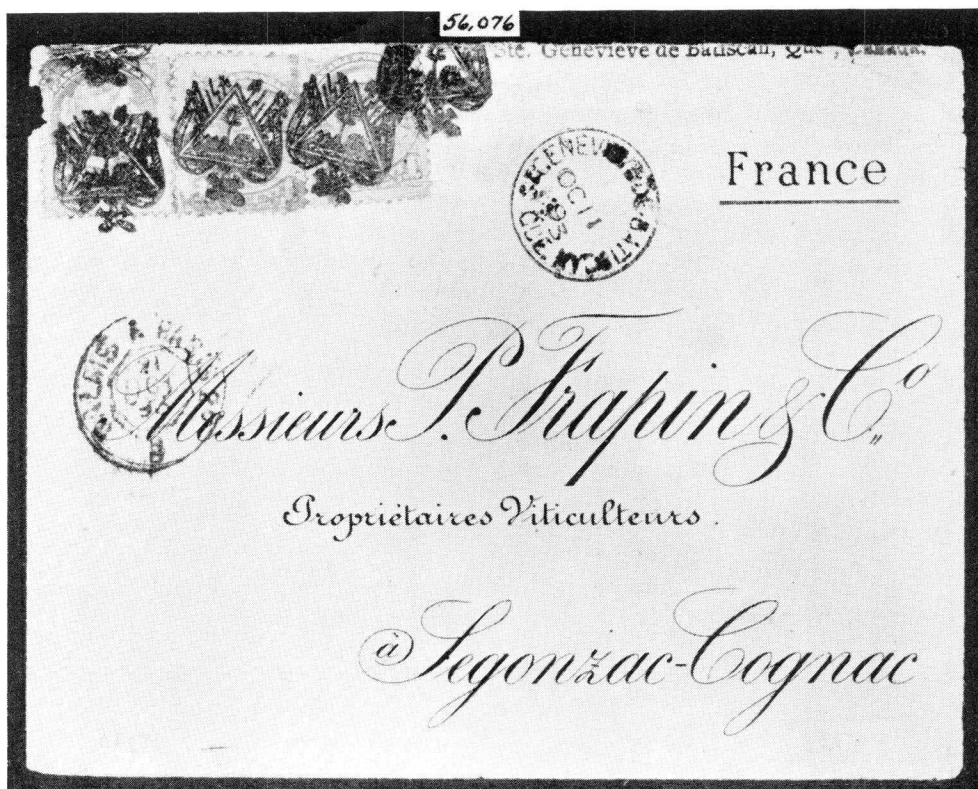 56,076
Ste. Geneviève de Batiscan, Que., Canada.
STE. GENEVIEVE DE BATISCAN QUE
OC 11
93
France
CALAIS A
Messieurs P. Frapin & Co
Propriétaires Viticulteurs.
à Segonzac-Cognac